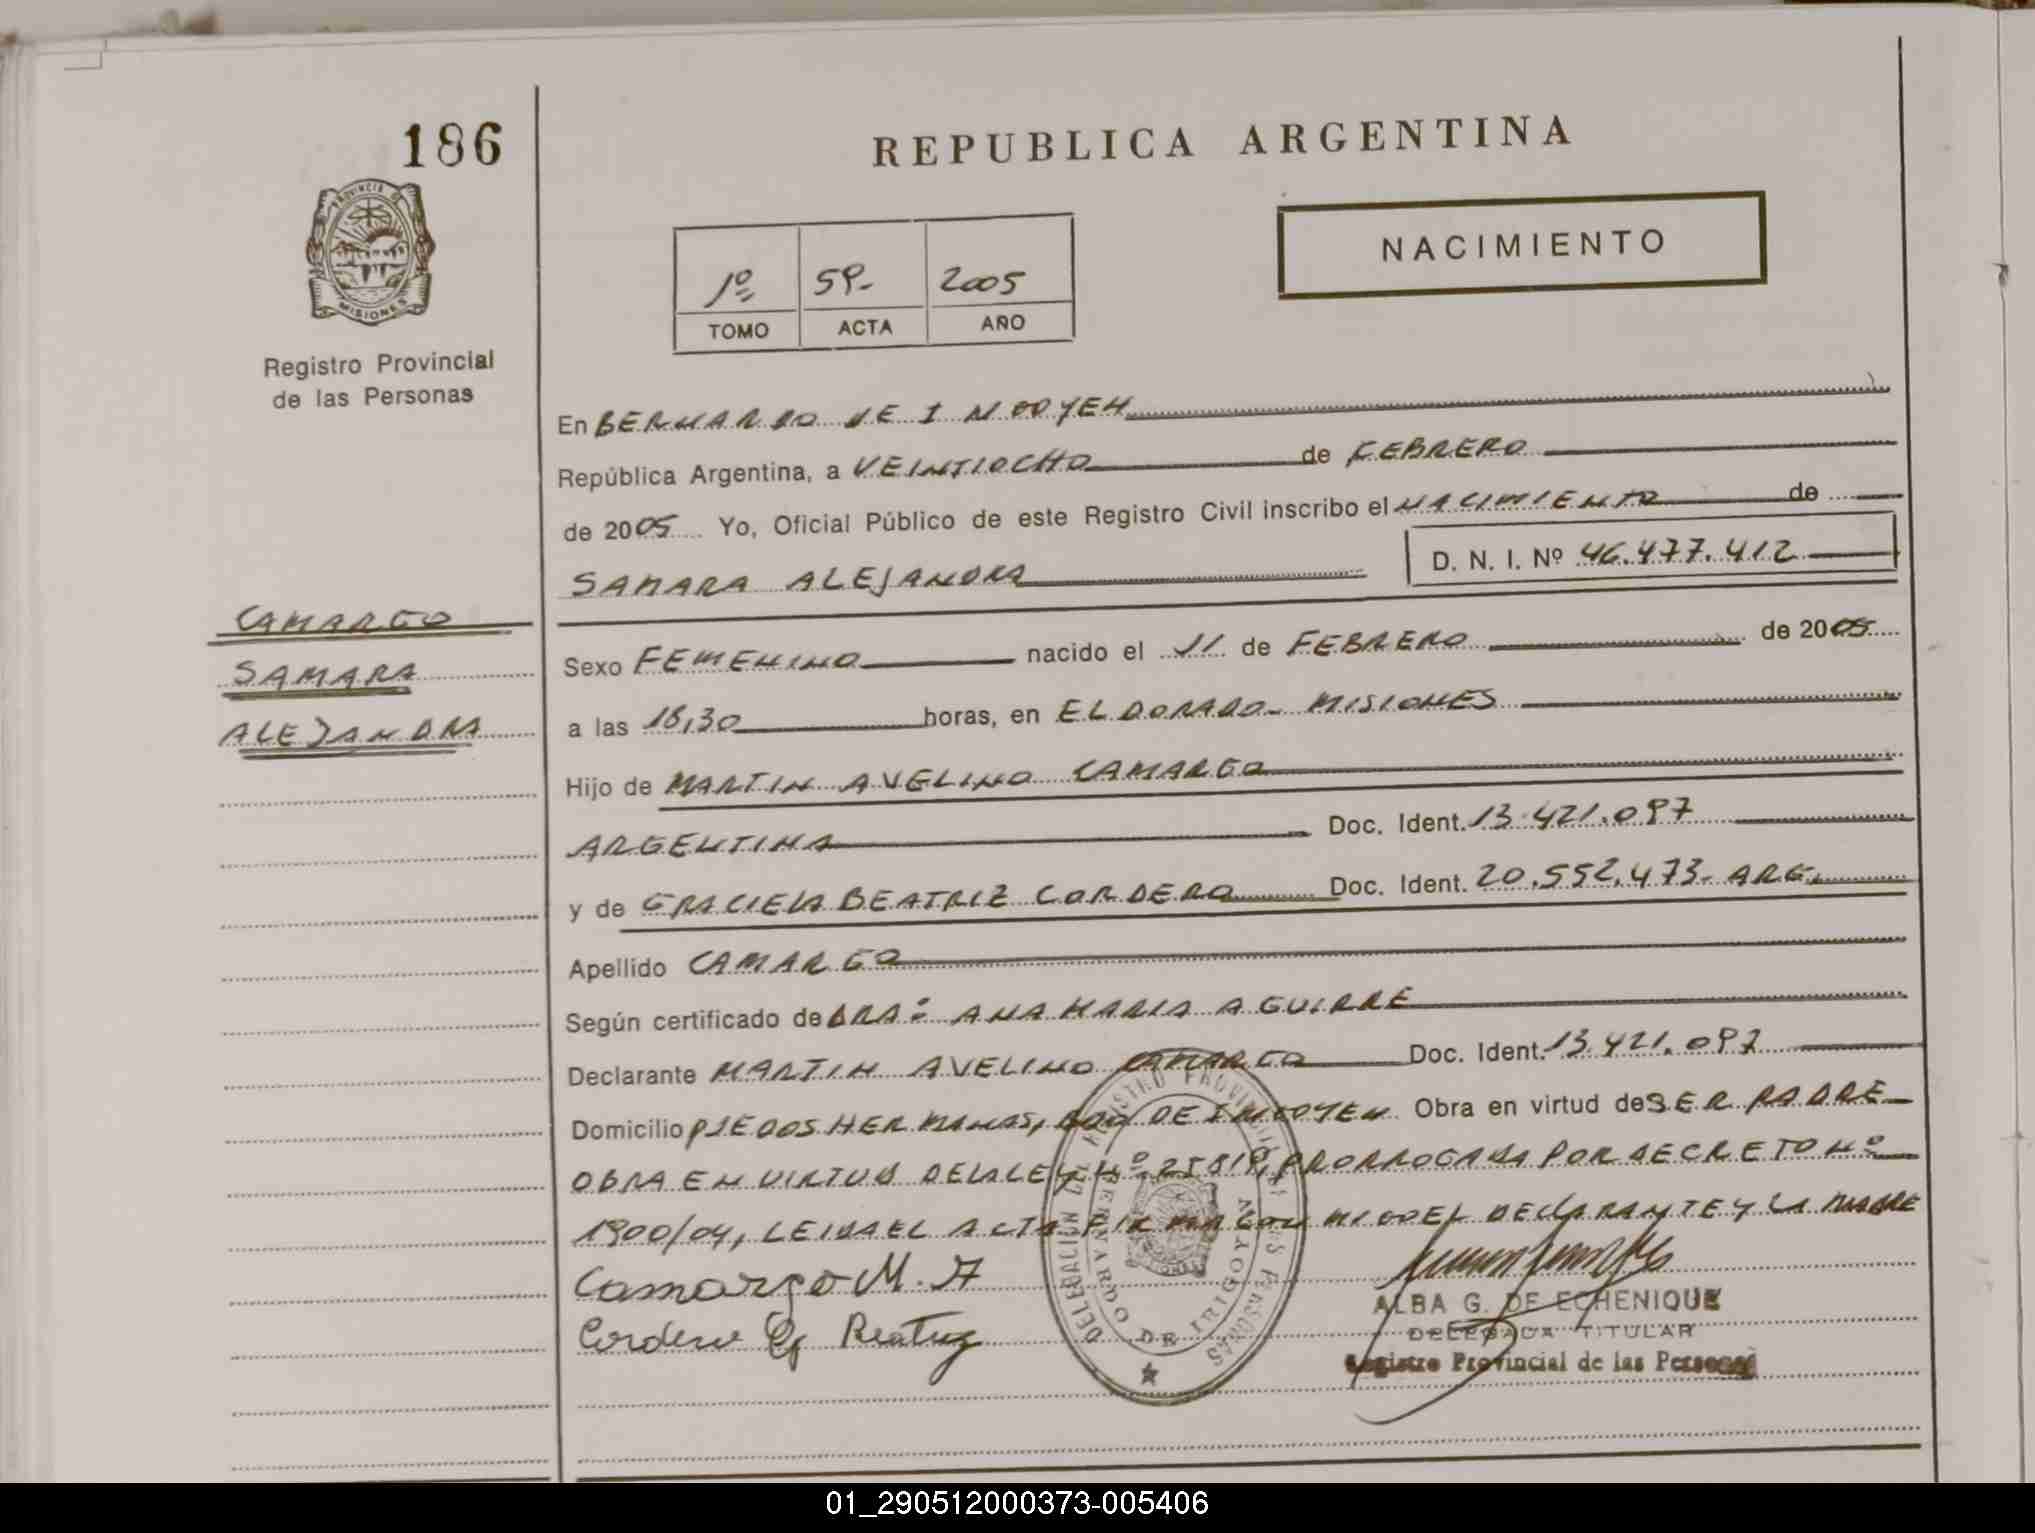 186
REPUBLICA ARGENTINA
PROVINCIA DE
MISIONES
Registro Provincial
de las Personas
NACIMIENTO
1º 59- 2005
TOMO ACTA AÑO
En BERNARDO DE IRIGOYEN
República Argentina, a VEINTIOCHO de FEBRERO
de 2005 Yo, Oficial Público de este Registro Civil inscribo el NACIMIENTO de
SAMARA ALEJANDRA D. N. I. Nº 46.477.412
CAMARGO
SAMARA
ALEJANDRA
Sexo FEMENINO nacido el 11 de FEBRERO de 2005
a las 18,30 horas, en ELDORADO- MISIONES
Hijo de MARTIN AVELINO CAMARGO
ARGENTINA Doc. Ident. 13.421.097
y de GRACIELA BEATRIZ CORDERO Doc. Ident. 20.552.473- ARG.
Apellido CAMARGO
Según certificado de DRA: ANA MARIA AGUIRRE
Declarante MARTIN AVELINO CAMARGO Doc. Ident. 13.421.097
Domicilio PJE DOS HERMANAS, BDO DE IRIGOYEN Obra en virtud de SER PADRE
OBRA EN VIRTUD DE LA LEY Nº 25819, PRORROGADA POR DECRETO Nº
1900/04, LEIDA EL ACTA FIRMAN CON MIGO EL DECLARANTE Y LA MADRE
Camargo M. A
Cordero G Beatriz
DELEGACION DEL REGISTRO PROVINCIAL DE LAS PERSONAS
BERNARDO DE IRIGOYEN
ALBA G. DE ECHENIQUE
DELEGADA TITULAR
Registro Provincial de las Personas
01_290512000373-005406